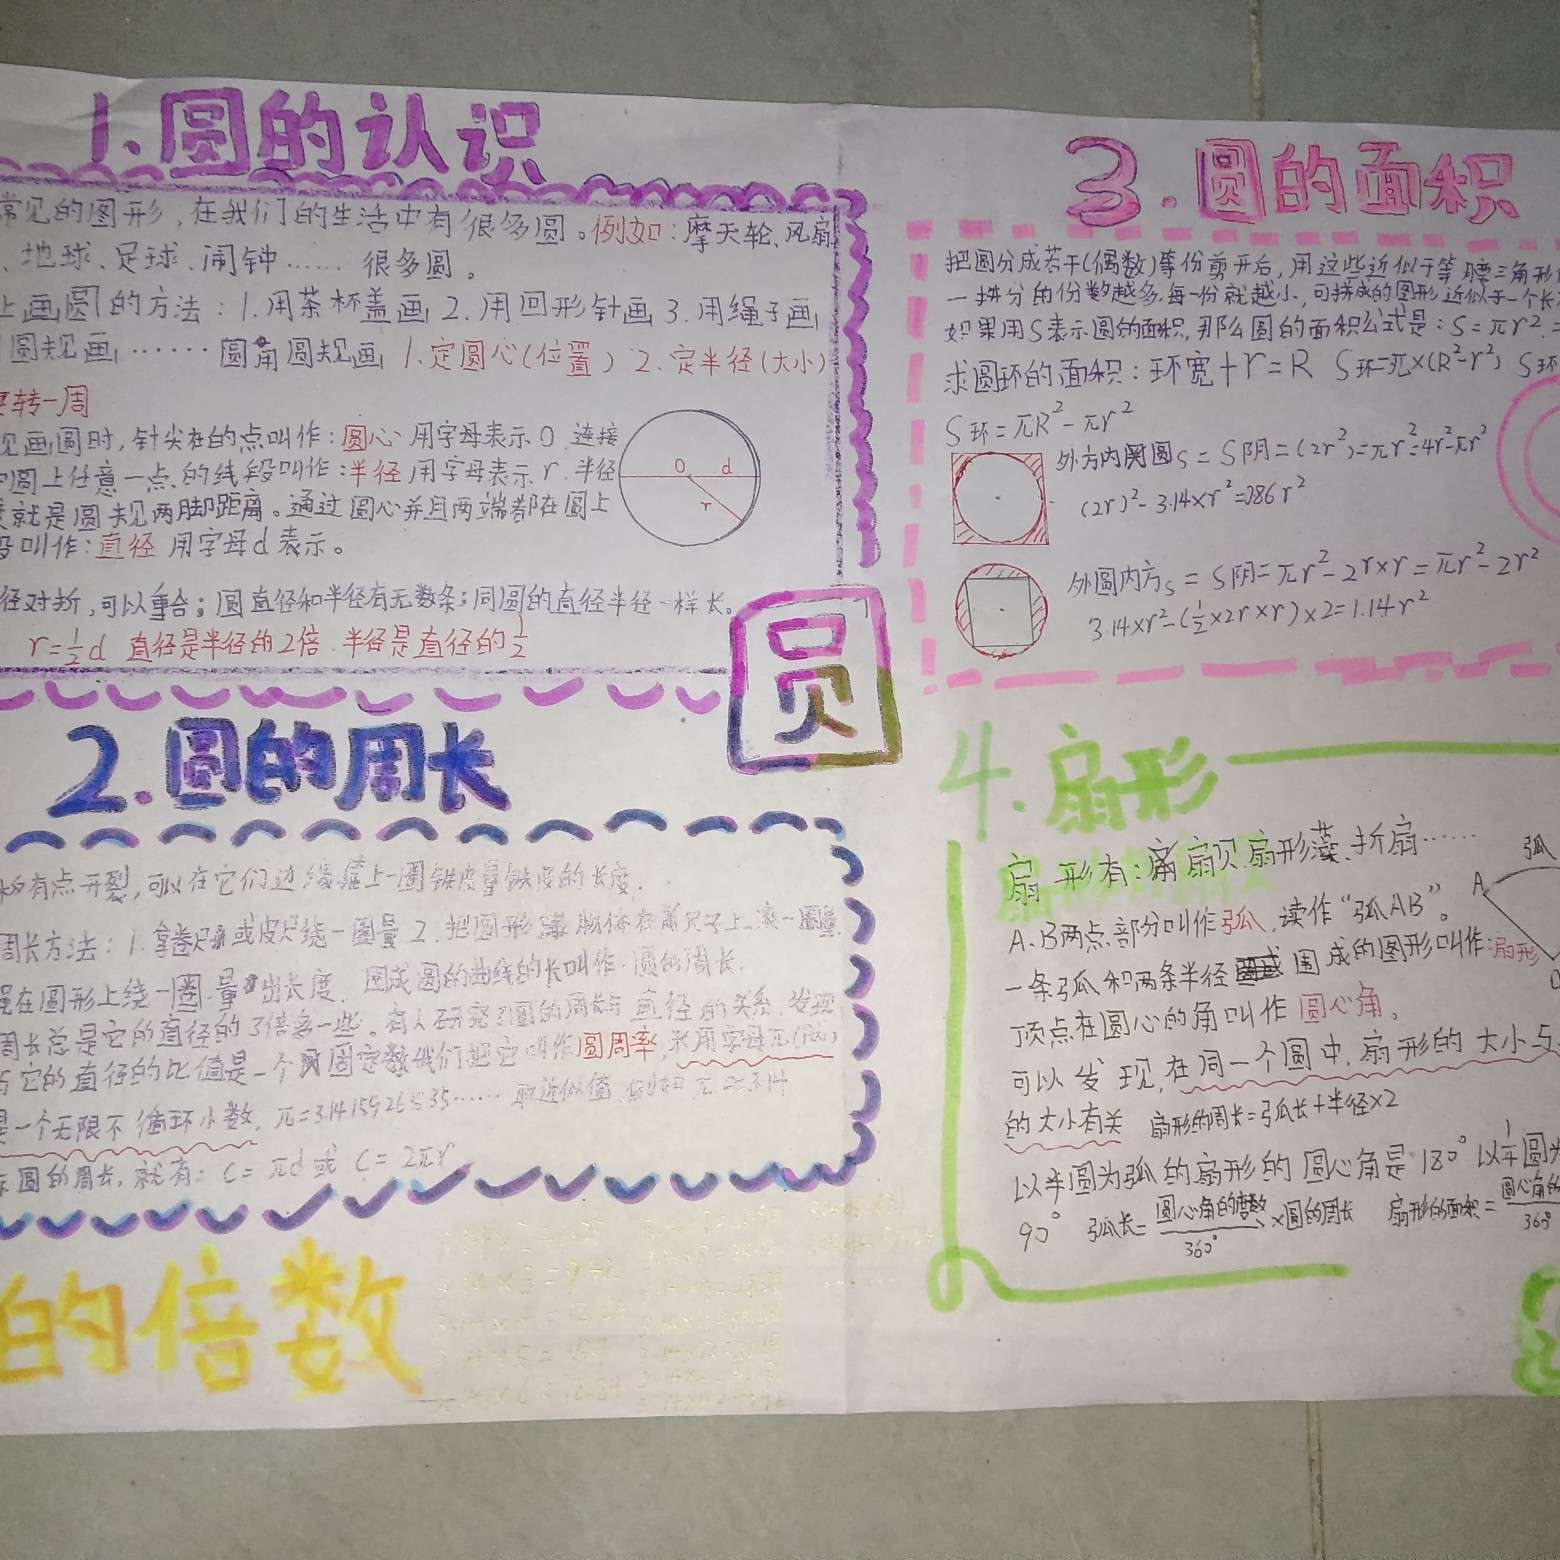 1.圆的认识
常见的图形,在我们的生活中有很多圆。例如:摩天轮、风扇
、地球、足球、闹钟……很多圆。
画圆的方法:1.用茶杯盖画2.用回形针画3.用绳子画
圆规画……圆 圆规画 1.定圆心(位置)2.定半径(大小)
转一周
画圆时,针尖在的点叫作:圆心 用字母表示O 连接
圆上任意一点的线段叫作:半径 用字母表示r.半径
就是圆规两脚距离。通过圆心并且两端都在圆上
叫作:直径 用字母d表示。
O d
r
径对折,可以重合;圆直径和半径有无数条;同圆的直径半径一样长。
r=½d 直径是半径的2倍.半径是直径的½
圆
2.圆的周长
有点开裂,可以在它们边缘箍上一圈铁皮量铁皮的长度.
周长方法:1.拿卷尺 或皮尺绕一圈量2.把圆形 物体在 尺子上滚一圈量.
在圆形上绕一圈.量 出长度. 围成圆的曲线的长叫作.圆的周长.
周长总是它的直径的3倍多一些。有人研究了圆的周长与直径的关系,发现
与它的直径的比值是一个 固定数我们把它叫作圆周率,采用字母π
是一个无限不循环小数,π=3.1415926535……取近似值,例如π≈3.14
圆的周长,就有:C=πd或 C=2πr
的倍数
3.圆的面积
把圆分成若干(偶数)等份剪开后,用这些近似于等腰三角形
一拼分的份数越多.每一份就越小,可拼成的图形近似于一个长
如果用S表示圆的面积,那么圆的面积公式是:S=πr².=
求圆环的面积:环宽+r=R S环=π×(R²-r²) S环
S环=πR²-πr²
外方内 圆s=S阴=(2r²)=πr²=4r²-πr²
(2r)²-3.14×r²=0.86r²
外圆内方s=S阴=πr²-2r×r=πr²-2r²
3.14×r²-(½×2r×r)×2=1.14r²
4.扇形
扇形有: 扇贝.扇形藻.折扇……
A、B两点部分叫作弧,读作“弧AB”。
一条弧和两条半径 围成的图形叫作:扇形
顶点在圆心的角叫作 圆心角。
可以发现,在同一个圆中,扇形的大小与
的大小有关 扇形的周长=弧长+半径×2
以半圆为弧的扇形的圆心角是180°以¼圆为
90° 弧长=圆心角的度数/360°×圆的周长 扇形的面积=圆心角的/360°
弧
A